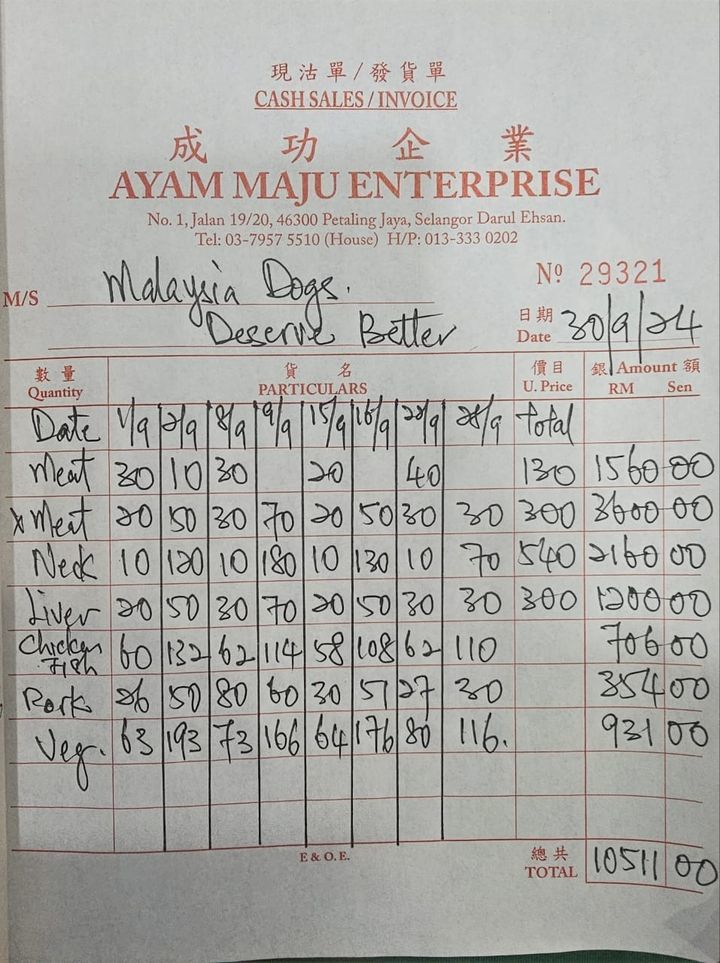 現沽單/發貨單
CASH SALES / INVOICE
成功企業
AYAM MAJU ENTERPRISE
No. 1, Jalan 19/20, 46300 Petaling Jaya, Selangor Darul Ehsan.
Tel: 03-7957 5510 (House) H/P: 013-333 0202
Nº 29321
M/S Malaysia Dogs.
Deserve Better
日期 Date 30/9/24
數量 貨名 價目 銀 Amount 額
Quantity PARTICULARS U. Price RM Sen
Date 1/9 2/9 8/9 9/9 15/9 16/9 22/9 28/9 total
Meat 30 10 30 20 40 130 1560 00
x Meat 20 50 30 70 20 50 30 30 300 3600 00
Neck 10 120 10 180 10 130 10 70 540 2160 00
Liver 20 50 30 70 20 50 30 30 300 1200 00
Chicken Fish 60 132 62 114 58 108 62 110 706 00
Pork 26 50 80 60 30 51 27 30 354 00
Veg. 63 193 73 166 64 176 80 116. 931 00
E & O. E.
總共
TOTAL 10511 00